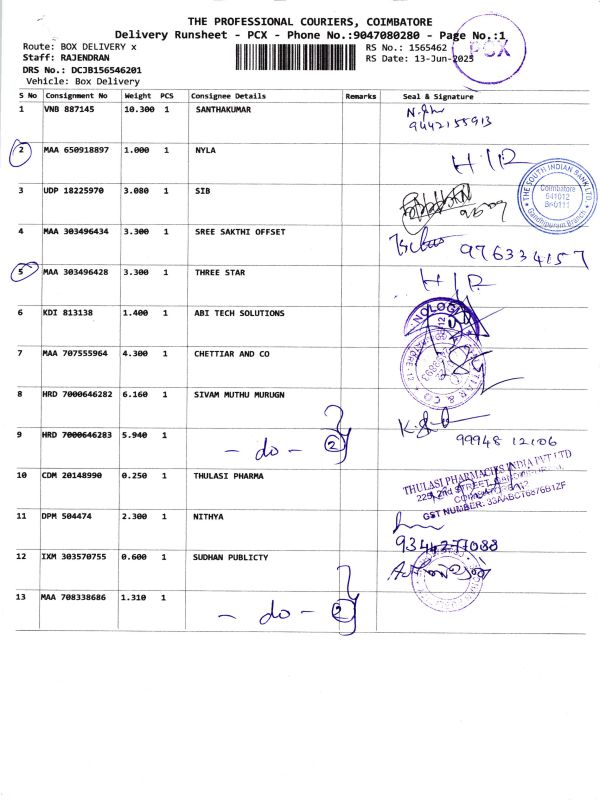 THE PROFESSIONAL COURIERS, COIMBATORE
Delivery Runsheet - PCX - Phone No.:9047080280 - Page No.:1
Route: BOX DELIVERY x
RS No.: 1565462
PCX
Staff: RAJENDRAN
RS Date: 13-Jun-2025
DRS No.: DCJB156546201
Vehicle: Box Delivery
S No Consignment No Weight PCS Consignee Details Remarks Seal & Signature
1 VNB 887145 10.300 1 SANTHAKUMAR
9442155913
2 MAA 650918897 1.000 1 NYLA
THE SOUTH INDIAN BANK LTD.
Coimbatore
641012
Br-0111
Gandhipuram Branch
3 UDP 18225970 3.080 1 SIB
4 MAA 303496434 3.300 1 SREE SAKTHI OFFSET
976334157
5 MAA 303496428 3.300 1 THREE STAR
6 KDI 813138 1.400 1 ABI TECH SOLUTIONS
7 MAA 707555964 4.300 1 CHETTIAR AND CO
8 HRD 7000646282 6.160 1 SIVAM MUTHU MURUGN
9 HRD 7000646283 5.940 1
- do - 2
99948 12106
10 CDM 20148990 0.250 1 THULASI PHARMA
THULASI PHARMACIES INDIA PVT LTD
GST NUMBER: 33AABCT6876B1ZF
11 DPM 504474 2.300 1 NITHYA
9344277088
12 IXM 303570755 0.600 1 SUDHAN PUBLICTY
13 MAA 708338686 1.310 1
- do - 2